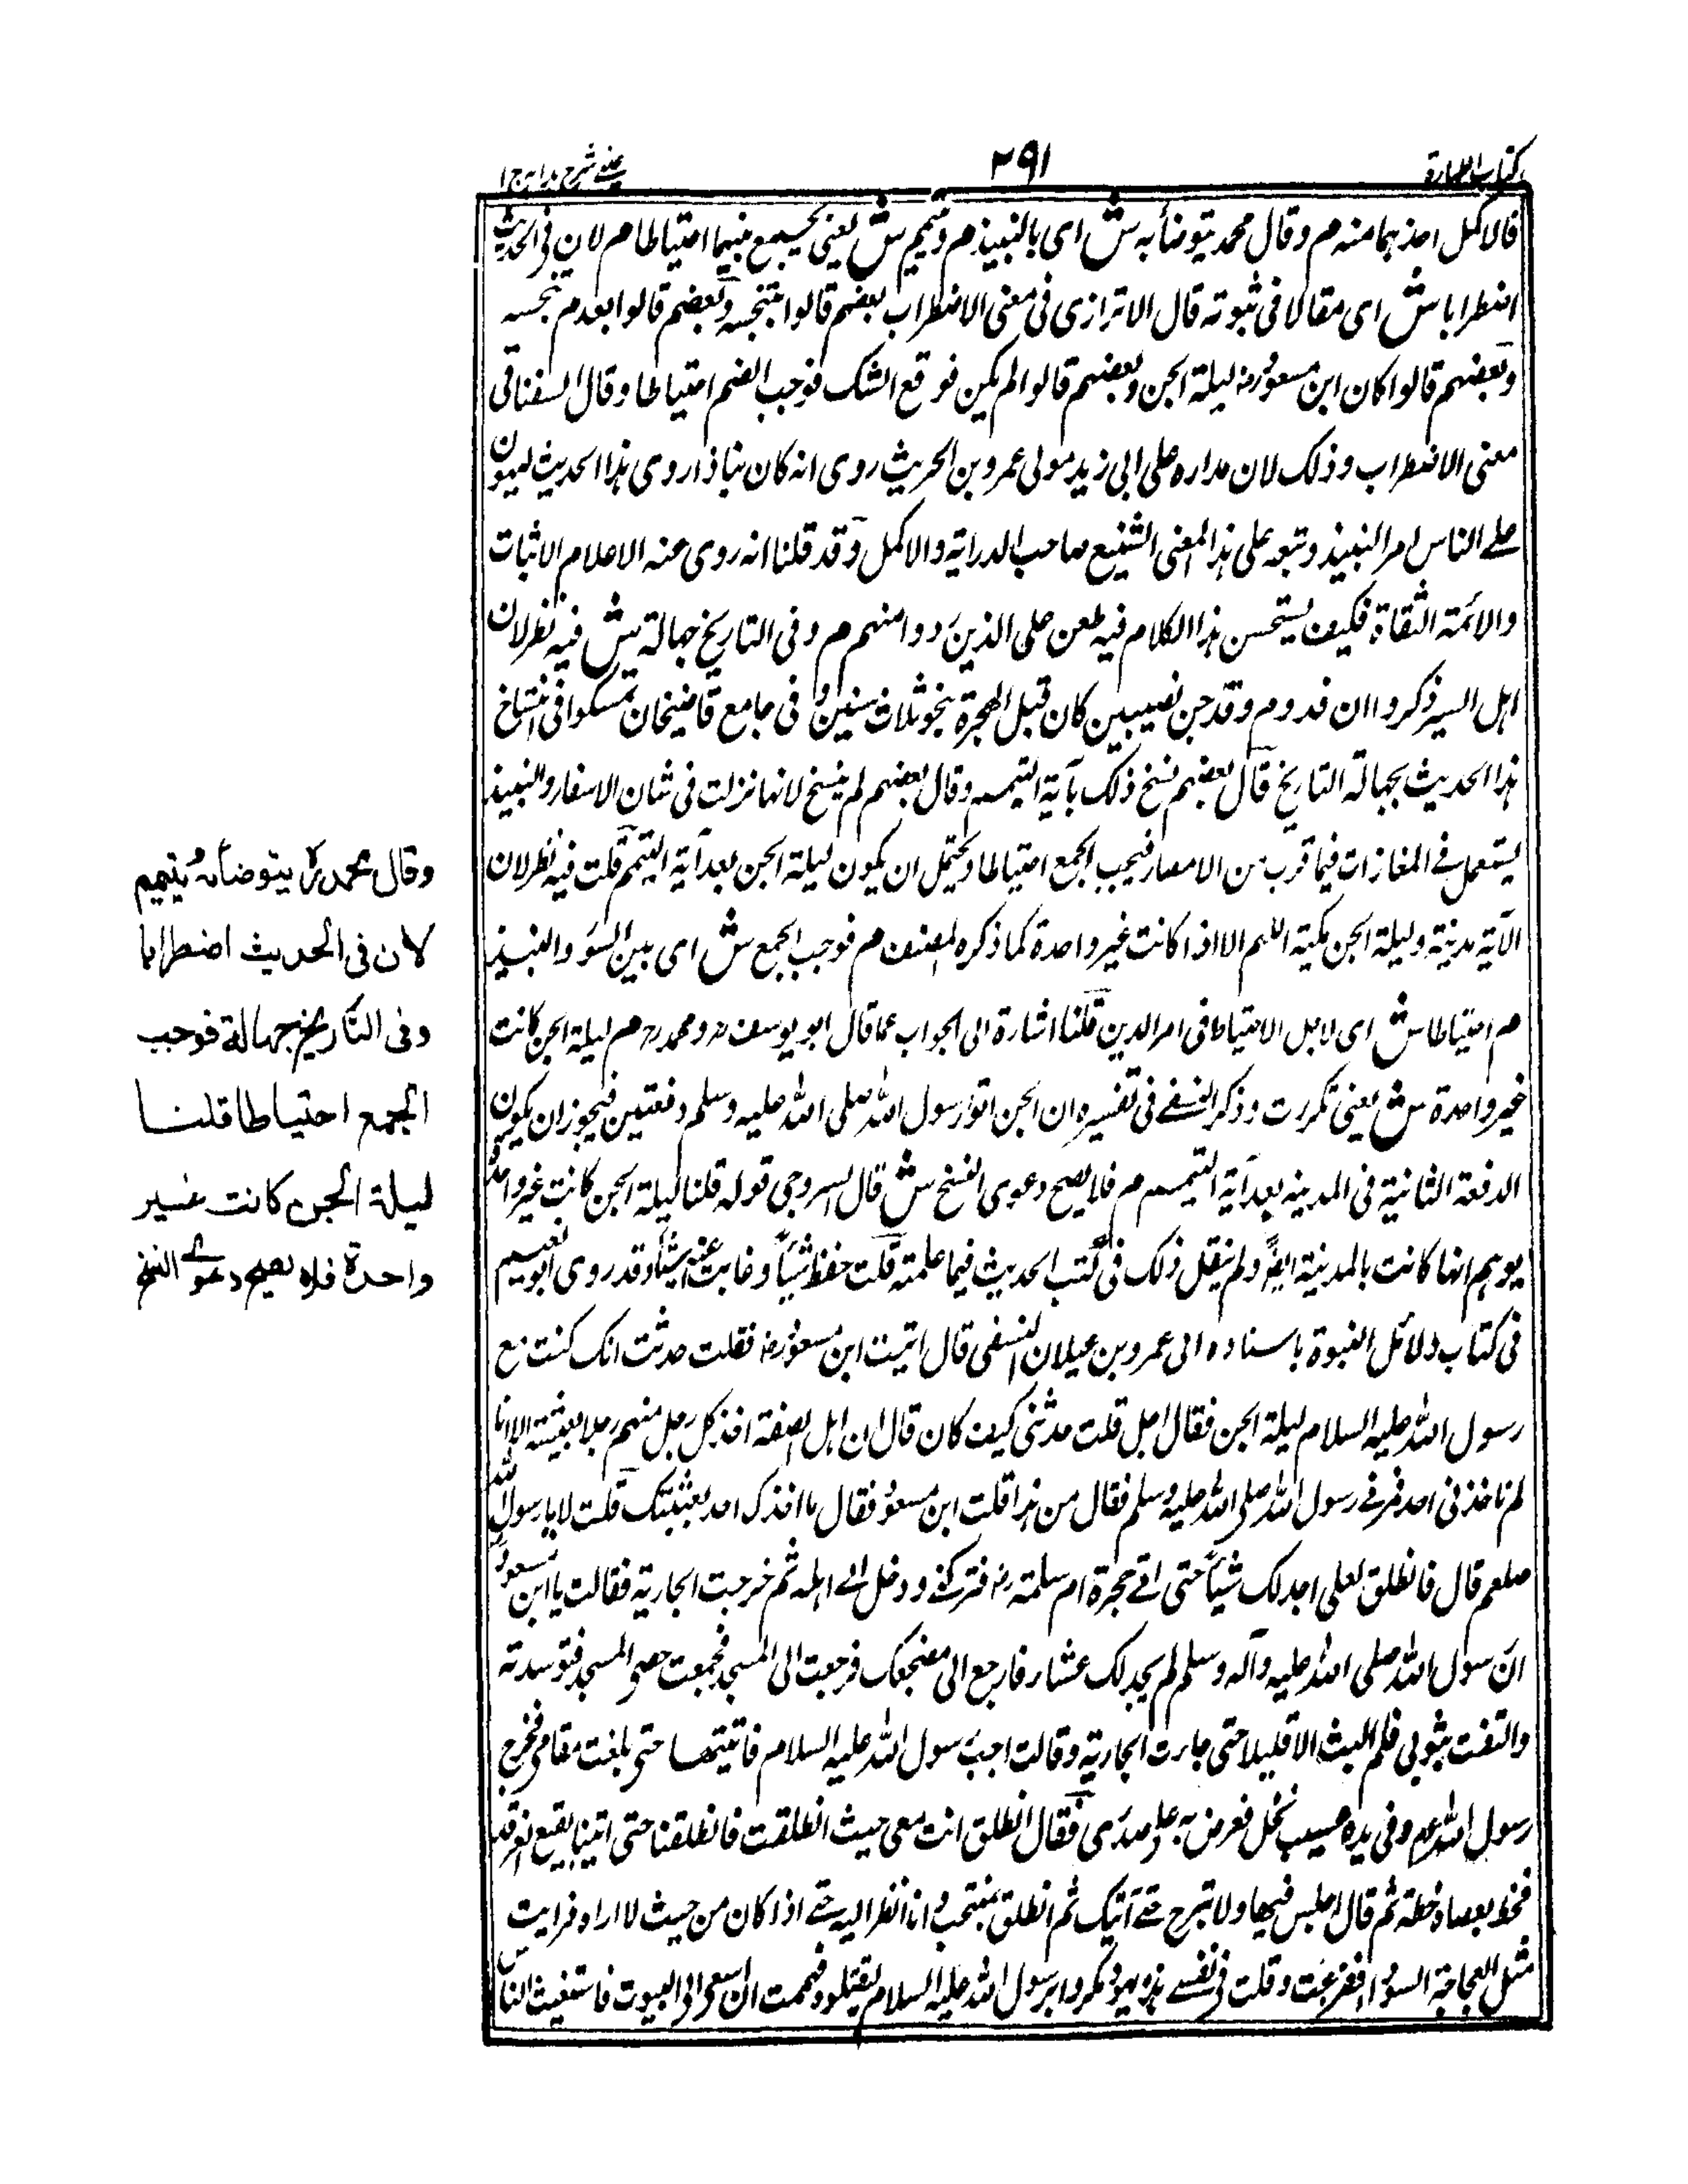 كتاب الطهارة
٢٩١
عيني شرح هداية ج ١
فالاكمل اخذهما منه م وقال محمد يتوضأ به ش اى بالنبيذ م ويتيمم ش يعنى يجمع بينهما احتياطا م لان فى الحديث
اضطرابا ش اى مقالا فى ثبوته قال الاترازى فى معنى الاضطراب بعضهم قالوا بتنجسه وبعضهم قالوا بعدم تنجسه
وبعضهم قالوا كان ابن مسعودرض ليلة الجن وبعضهم قالوا لم يكن فوقع الشك فوجب الضم احتياطا وقال السغناقى
معنى الاضطراب وذلك لان مداره على ابى زيد مولى عمرو بن الحريث روى انه كان نباذا روى هذا الحديث ليهون
على الناس امر النبيذ وتبعه على هذا المعنى الشنيع صاحب الدراية والاكمل وقد قلنا انه روى عنه الاعلام الاثبات
والائمة الثقاة فكيف يستحسن هذا الكلام فيه طعن على الذين رووا منهم م وفى التاريخ جهالة ش فيه نظر لان
اهل السير ذكروا ان قدوم وفد جن نصيبين كان قبل الهجرة بنحو ثلاث سنين وفى جامع قاضيخان تمسكوا فى انتساخ
هذا الحديث بجهالة التاريخ قال بعضهم نسخ ذلك بآية التيمم وقال بعضهم لم ينسخ لانها نزلت فى شان الاسفار والنبيذ
يستعمل فى المغازات فيما قرب من الامصار فيجب الجمع احتياطا ويحتمل ان يكون ليلة الجن بعد آية التيمم قلت فيه نظر لان
الآية مدنية وليلة الجن مكية اللهم الا اذا كانت غير واحدة كما ذكره المصنف م فوجب الجمع ش اى بين السؤر والنبيذ
م احتياطا ش اى لاجل الاحتياط فى امر الدين قلنا اشارة الى الجواب عما قال ابو يوسف رح ومحمد رح م ليلة الجن كانت
غير واحدة ش يعنى تكررت وذكر النسفى فى تفسيره ان الجن اتوا رسول الله صلى الله عليه وسلم دفعتين فيجوز ان يكون
الدفعة الثانية فى المدينه بعد آية التيمم م فلا يصح دعوى النسخ ش قال السروجى قوله قلنا ليلة الجن كانت غير واحدة
يوهم انها كانت بالمدينة ايضا ولم ينقل ذلك فى كتب الحديث فيما علمته قلت حفظ شيئا وغابت عنه اشيئا وقد روى ابو نعيم
فى كتاب دلائل النبوة باسناده الى عمرو بن عيلان النسفى قال اتيت ابن مسعودرض فقلت حدثت انك كنت مع
رسول الله عليه السلام ليلة الجن فقال اجل قلت حدثنى كيف كان قال ان اهل الصفة اخذ كل رجل منهم رجلا بعشيته الا انا
لم ناخذنى احد فمر فى رسول الله صلى الله عليه وسلم فقال من هذا قلت ابن مسعود فقال ما اخذك احد بعشيتك قلت لا يا رسول الله
صلعم قال فانطلق لعلى اجد لك شيئا حتى اتى حجرة ام سلمة رض فتركنى ودخل الى اهله ثم خرجت الجارية فقالت يا ابن مسعود
ان رسول الله صلى الله عليه وآله وسلم لم يجد لك عشاء فارجع الى مضجعك فرجعت الى المسجد فجمعت حصى المسجد فتوسدته
والتففت بثوبى فلم البث الا قليلا حتى جاءت الجارية وقالت اجب رسول الله عليه السلام فاتبعتها حتى بلغت مقامى فخرج
رسول الله عم وفى يده عسيب نخل فعرض به على صدرى فقال انطلق انت معى حيث انطلقت فانطلقنا حتى اتينا بقيع الغرقد
فخط بعصاه خطة ثم قال اجلس فيها ولا تبرح حتى آتيك ثم انطلق يمشى وانا انظر اليه حتى اذا كان من حيث لا اراه فرايت
مثل العجاجة السوداء ففزعت وقلت فى نفسى هذه هوازن مكروا برسول الله عليه السلام ليقتلوه فهممت ان اسعى الى البيوت فاستغيث الناس
وقال محمد رح يتوضأ به ويتيمم
لان فى الحديث اضطرابا
وفى التاريخ جهالة فوجب
الجمع احتياطا قلنا
ليلة الجن كانت غير
واحدة فلا يصح دعوى النسخ